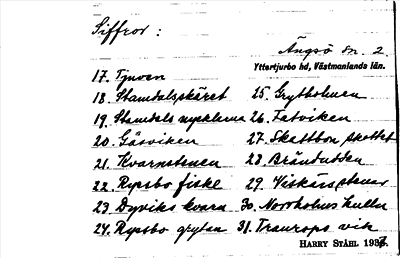 Siffror:
Ängsö sn. 2
Yttertjurbo hd, Västmanlands län.
17. Tjuven
18. Stamdalsskäret 25. Grytholmen
19. Stamdals nycklarna 26. Fatviken
20. Gåsviken 27. Skattbon skottet
21. Kvarnstenen 28. Brändudden
22. Rypsbo fiske 29. Viskärsstenar
23. Dyviks kvarn 30. Norrholms kulle
24. Rypsbo grytan 31. Tranrops vik
HARRY STÅHL 1937.